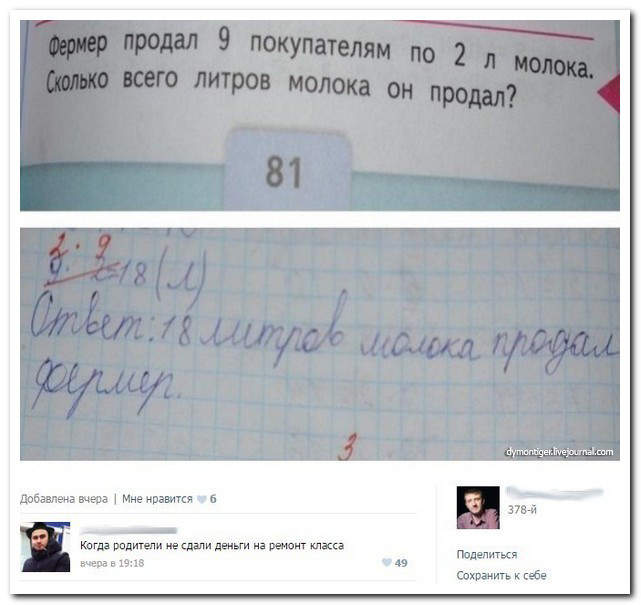 Фермер продал 9 покупателям по 2 л молока.
Сколько всего литров молока он продал?
81
2 · 9
9 · 2=18 (л)
Ответ: 18 литров молока продал
фермер.
3
dymontiger.livejournal.com
Добавлена вчера | Мне нравится 6
Когда родители не сдали деньги на ремонт класса
вчера в 19:18
49
378-й
Поделиться
Сохранить к себе